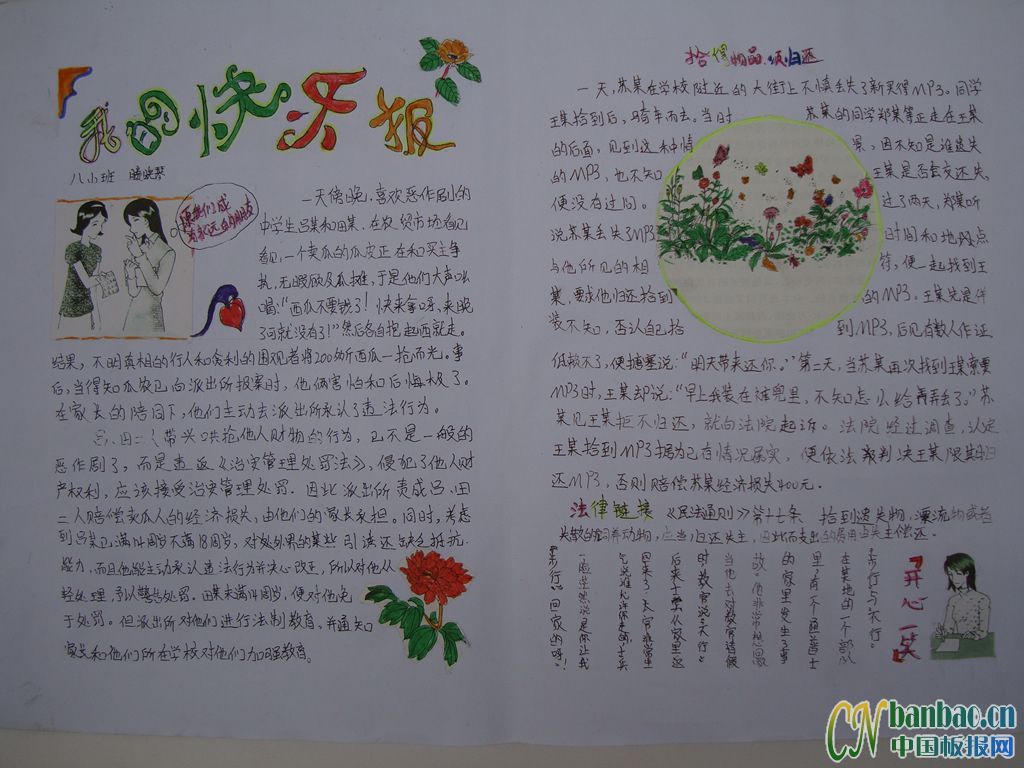 我的快乐报
八小班
愿我们成
为永远的朋友
一天傍晚,喜欢恶作剧的
中学生吕某和田某,在农贸市场看见
看见一个卖瓜的瓜皮正在和买主争
执,无暇顾及瓜摊,于是他们大声吆
喝:“西瓜不要钱了!快来拿呀,来晚
了可就没有了!”然后各自抱起西就走。
结果,不明真相的行人和贪利的围观者将200多斤西瓜一抢而光。事
后,当得知瓜农已向派出所报案时,他俩害怕和后悔极了。
在家长的陪同下,他们主动去派出所承认了违法行为。
吕、田二人带头哄抢他人财物的行为,已不是一般的
恶作剧了,而是违反《治安管理处罚法》,侵犯了他人财
产权利,应该接受治安管理处罚。因此派出所责成吕、田
二人赔偿卖瓜人的经济损失,由他们的家长承担。同时,考虑
到吕某已满14周岁不满18周岁,对外界的某些引诱还缺乏抵抗
能力,而且他能主动承认违法行为并决心改正,所以对他从
轻处理,予以警告处罚。田某未满14周岁,便对他免
于处罚。但派出所对他们进行法制教育、并通知
家长和他们所在学校对他们加强教育。
拾得物品,须归还
一天,苏某在学校附近的大街上不慎丢失了新买得MP3。同学
王某拾到后,骑车而去。当时 苏某的同学郑某等正走在王某
的后面,见到这种情 景,因不知是谁遗失
的MP3,也不知 王某是否会交还失
便没有过问。 过了两天,郑某听
说苏某丢失了MP3 时间和地段点
与他所见的相 符,便一起找到王
某,要求他归还拾到 的MP3。王某先是佯
装不知,否认自己拾 到MP3,后见有数人作证
抵赖不了,便搪塞说:“明天带来还你。”第二天,当苏某再次找到王某索要
MP3时,王某却说:“早上我装在裤兜里,不知怎么给弄丢了。”苏
某见王某拒不归还,就向法院起诉。法院经过调查,认定
王某拾到MP3据为己有情况属实,便依法裁判决王某限期归
还MP3,否则赔偿苏某经济损失400元。
法律链接 《民法通则》第七十条 拾到遗失物,漂流物或者
失散的饲养动物,应当归还失主,因此而支出的费用由失主偿还。
开心一笑
步行与天行。
在某地的一个部队
里,有个通道士
的家里发生了事
故。他非常想回家
当他去对教官请假
时,教官说:
CNbanbao.cn
中国板报网